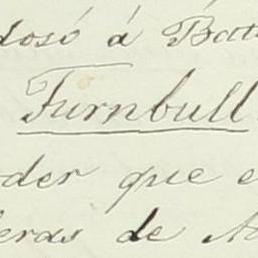 dosó á Bat
Turnbull
der que e
eras de